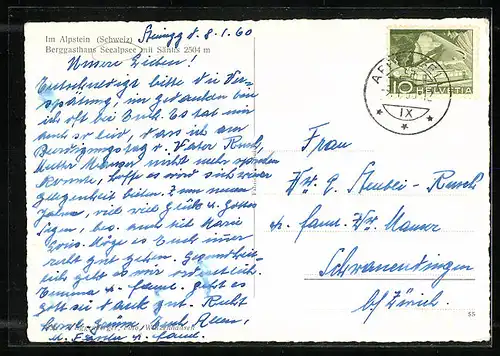 Im Alpstein (Schweiz)
Berggasthaus Seealpsee mit Säntis 2504 m
Steinegg d. 8.1.60
Unsere Lieben!
Entschuldigt bitte die Ver-
spätung, in Gedanken bin
ich oft bei Euch. Es tat mir
auch so leid, dass ich am
Beerdigungstag v. Vater Rusch,
Mutter nicht mehr sprechen
konnte, hoffe es wird sich wieder
gelegenheit bieten. Zum neuen
Jahre, viel viel Glück u. Gottes
Segen, bes. auch mit Marie
Louis. Möge es Euch immer
recht gut gehen. Gesundheit-
lich geht es mir ordentlich.
Emma u. fam. geht es
gott sei dank gut. Recht
herzl. Grüsse Euch Allen,
u. fam.
HELVETIA
10
APPENZELL
IX
Frau
Wwe. Rusch
u. fam. Wwe. Manser
Schwamendingen
b/ Zürich